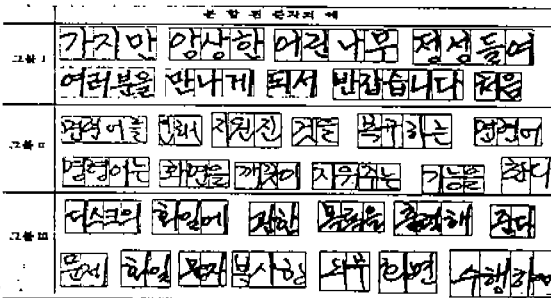 분 할 된 문자의 예
그룹 I
가지만 앙상한 어린 나무 정성들여
여러분을 만나게 되서 반갑습니다 처음
그룹 II
명령어를 지워진 것을 복구하는 명령어
명령어는 화면을 깨끗이 지워주는 기능을 한다
그룹 III
디스크의 화일에 관한 목록을 출력해 준다
문제 화일 문자 복사할 외부 화면 수행하여